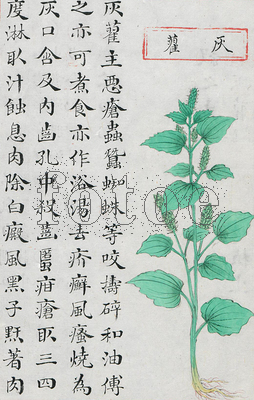 灰藋
灰藋主悪瘡蟲蠶蜘蛛等咬擣碎和油傅
之亦可煮食亦作浴湯去疥癬風瘙燒為
灰口含及内齒孔中殺齒䘌疳瘡取三四
度淋取汁蝕息肉除白癜風黑子黶著肉
fotoe